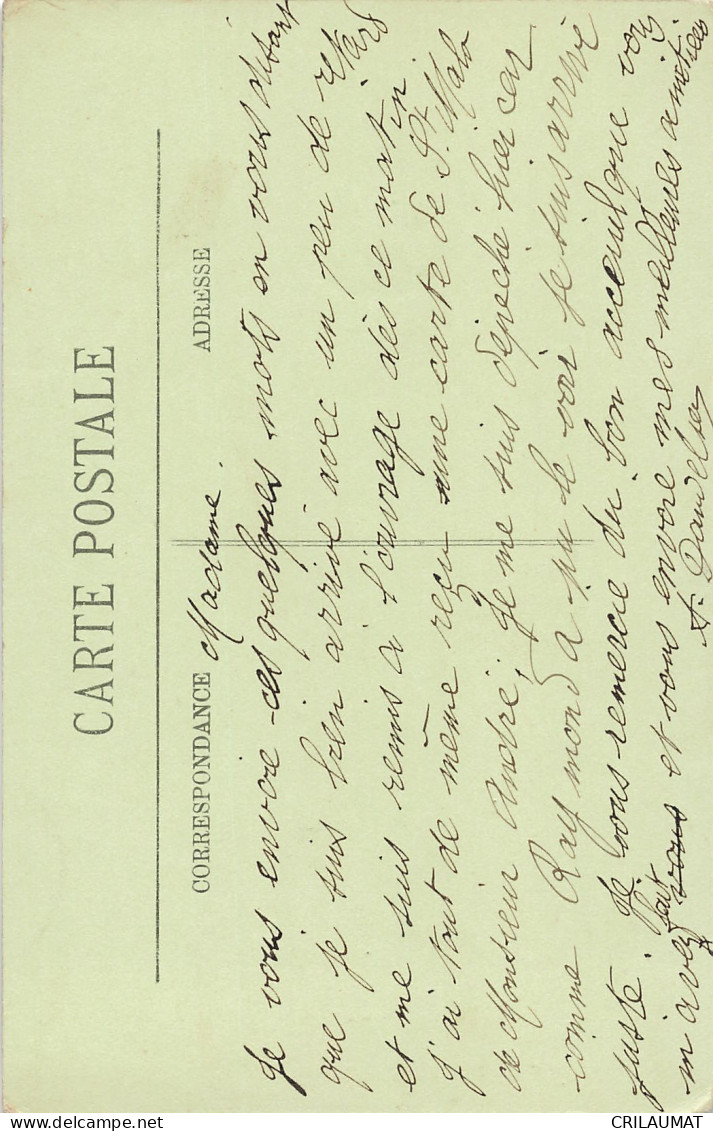 CARTE POSTALE
CORRESPONDANCE
ADRESSE
Madame.
Je vous envoie ces quelques mots en vous disant
que je suis bien arrivé avec un peu de retard
et me suis remis à l'ouvrage dès ce matin
J'ai tout de même reçu une carte de St Malo
de Monsieur André, Je me suis dépeché hier car
comme Raymond a pu le voir je suis arrivé
juste. Je vous remercie du bon acceuil que vous
m'avez fait vous et vous envoie mes meilleures amitiés
CRILAUMAT